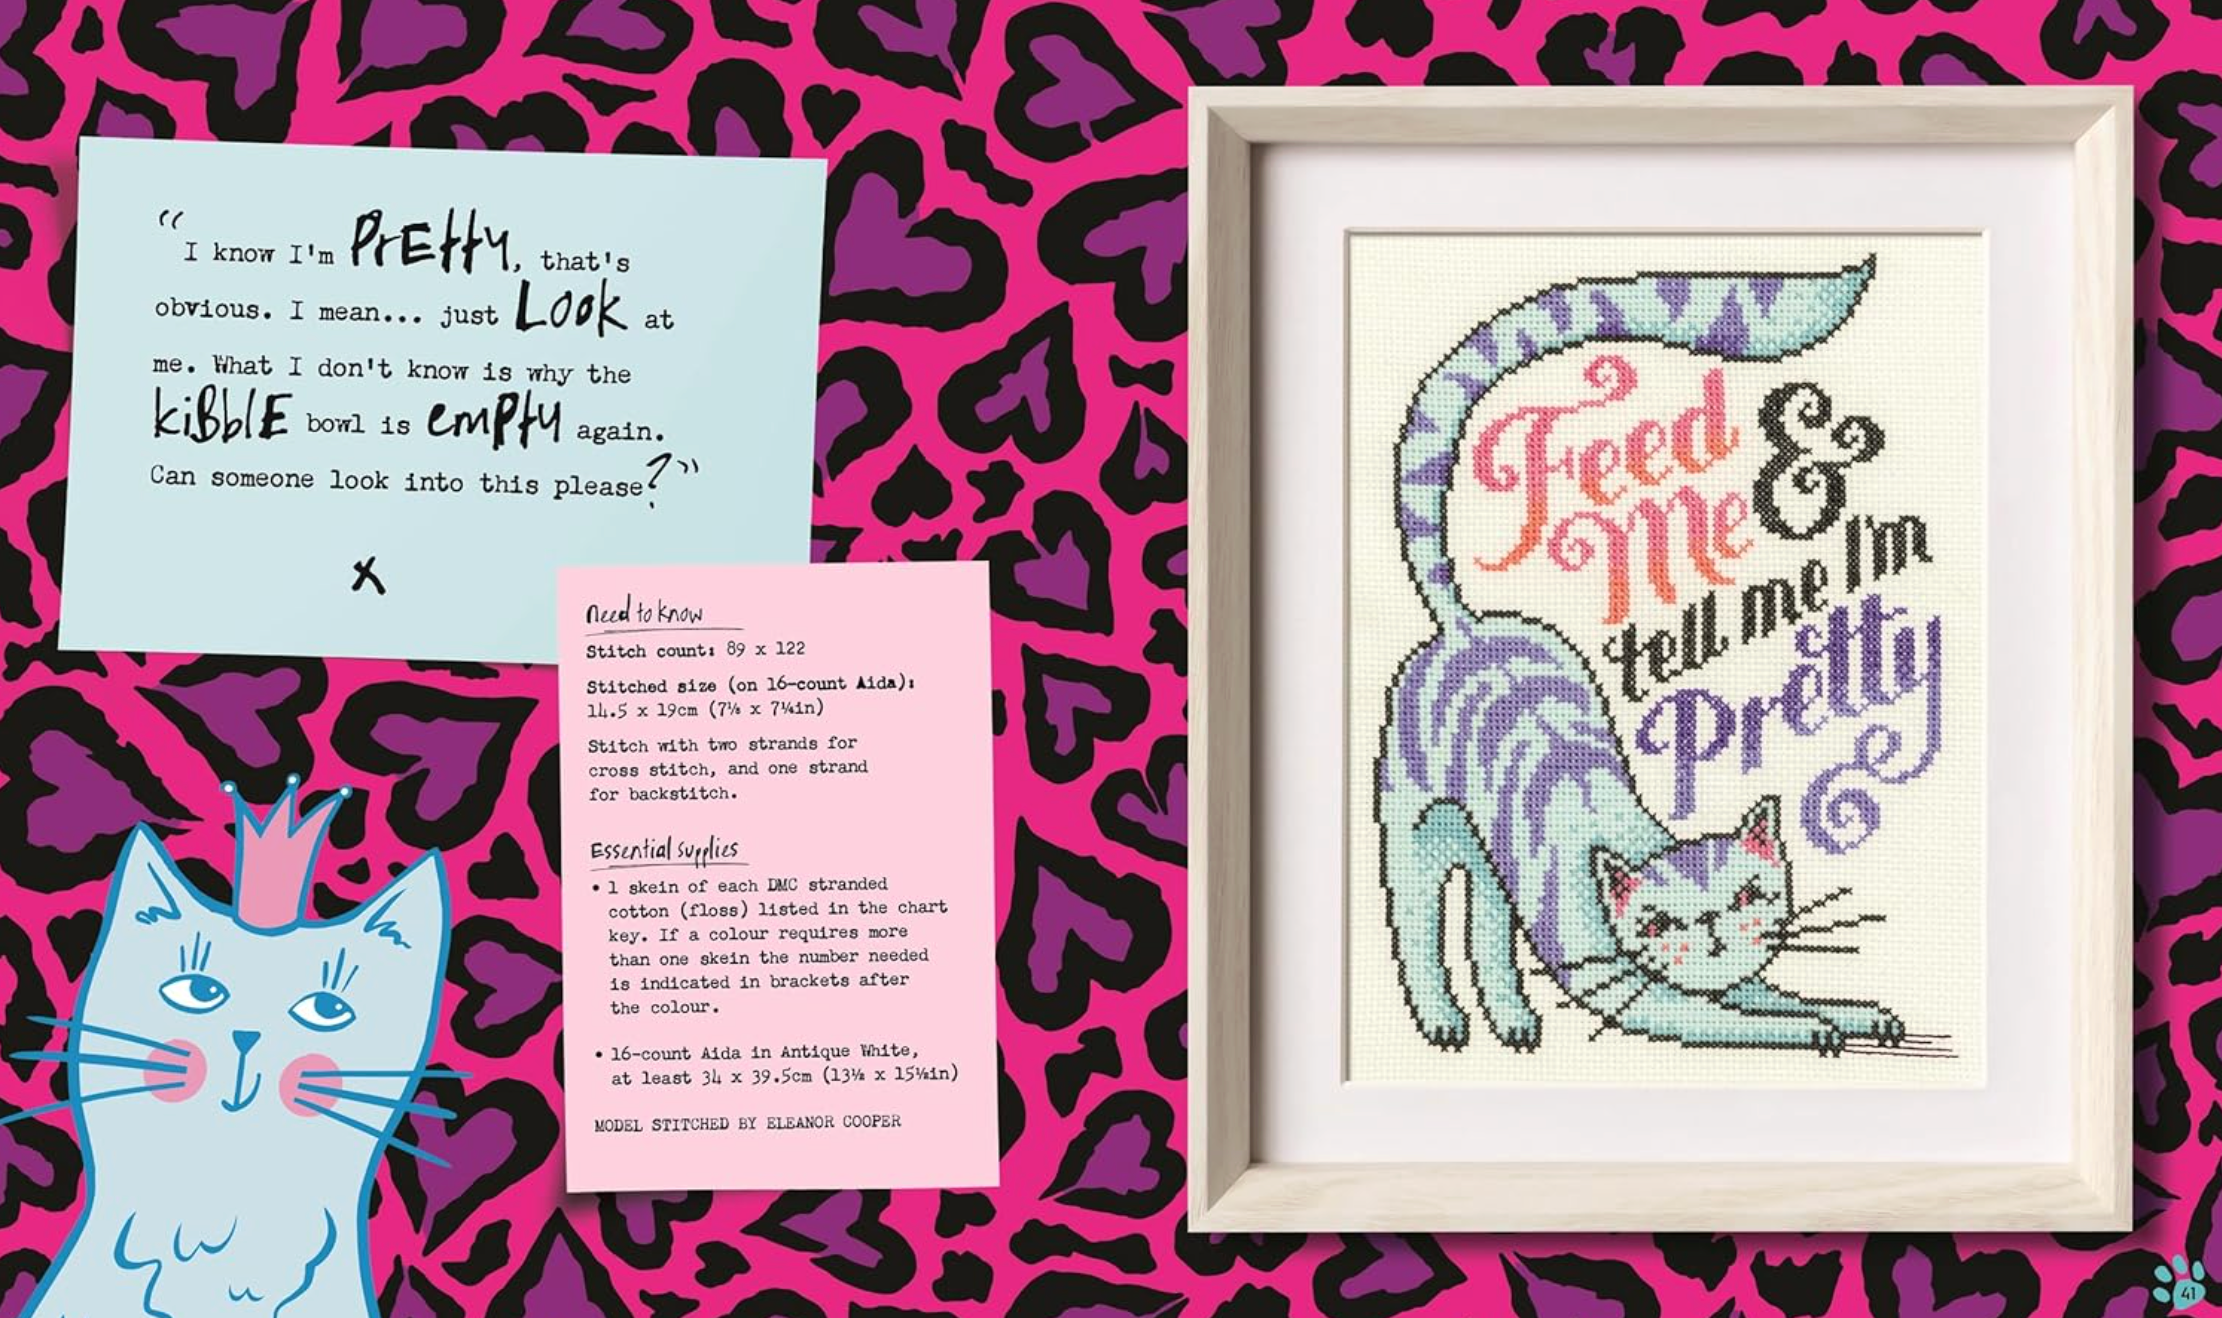 “I know I'm PrEtty, that's
obvious. I mean... just LOOK at
me. What I don't know is why the
kiBblE bowl is emPty again.
Can someone look into this please?”
x
Need to know
Stitch count: 89 x 122
Stitched size (on 16-count Aida):
14.5 x 19cm (7⅛ x 7¼in)
Stitch with two strands for
cross stitch, and one strand
for backstitch.
Essential supplies
• 1 skein of each DMC stranded
cotton (floss) listed in the chart
key. If a colour requires more
than one skein the number needed
is indicated in brackets after
the colour.
• 16-count Aida in Antique White,
at least 34 x 39.5cm (13½ x 15½in)
MODEL STITCHED BY ELEANOR COOPER
Feed
Me &
tell me I'm
Pretty
41